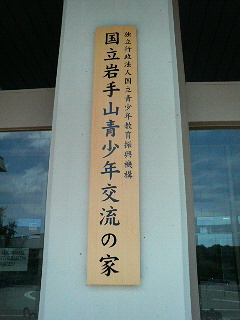 独立行政法人国立青少年教育振興機構
国立岩手山青少年交流の家